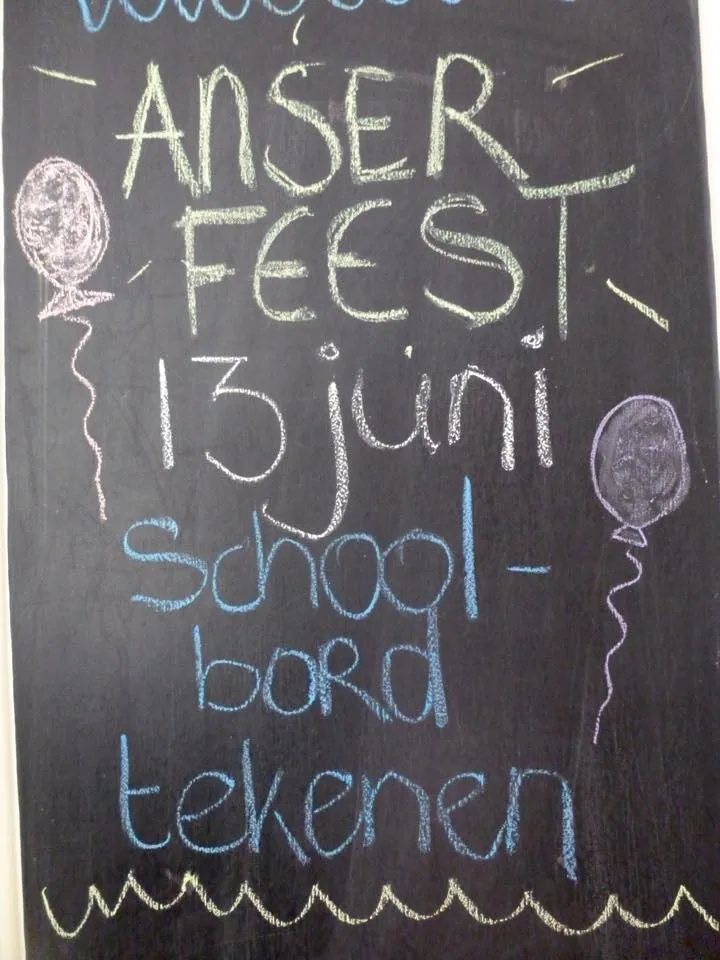 ANSER
FEEST
13 juni
School-
bord
tekenen